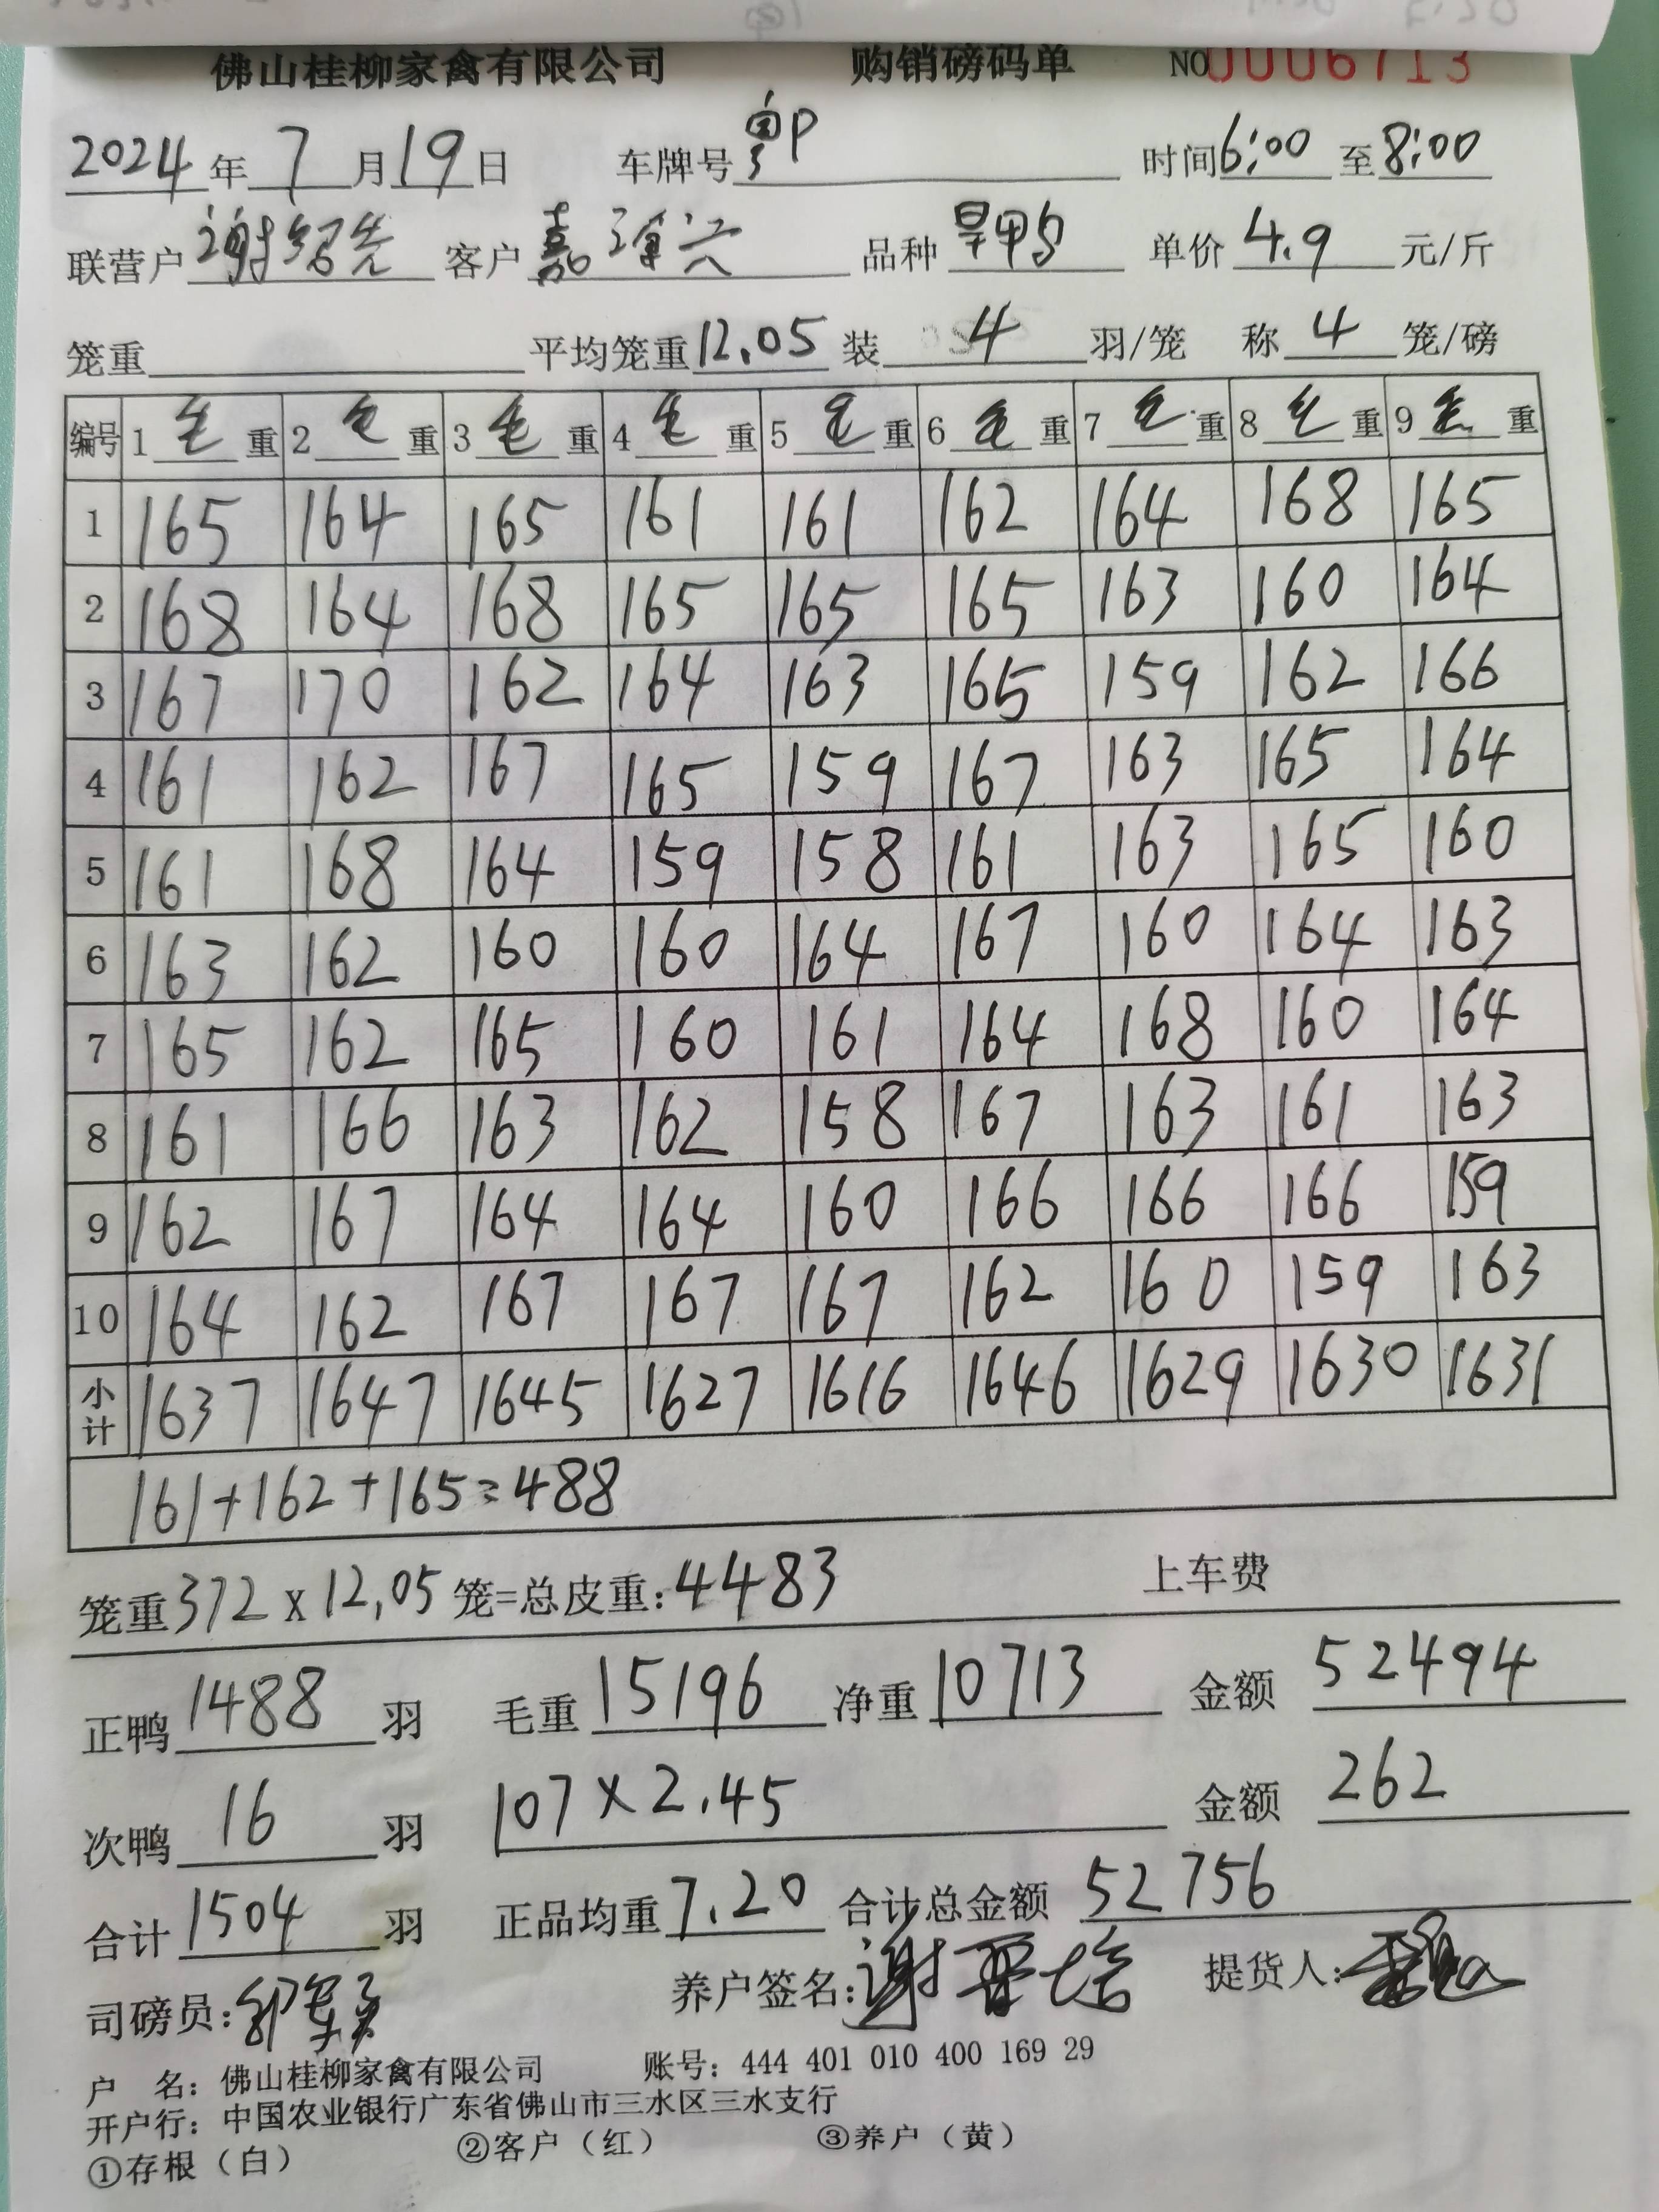 佛山桂柳家禽有限公司 购销磅码单 NO 0006713
2024年7月19日 车牌号 粤P 时间6:00至8:00
联营户 谢绍先 客户 嘉 兴 品种 旱鸭 单价 4.9 元/斤
笼重 平均笼重12.05 装 4 羽/笼 称 4 笼/磅
编号 1 毛 重 2 毛 重 3 毛 重 4 毛 重 5 毛 重 6 毛 重 7 毛 重 8 毛 重 9 毛 重
1 165 164 165 161 161 162 164 168 165
2 168 164 168 165 165 165 163 160 164
3 167 170 162 164 163 165 159 162 166
4 161 162 167 165 159 167 163 165 164
5 161 168 164 159 158 161 163 165 160
6 163 162 160 160 164 167 160 164 163
7 165 162 165 160 161 164 168 160 164
8 161 166 163 162 158 167 163 161 163
9 162 167 164 164 160 166 166 166 159
10 164 162 167 167 167 162 160 159 163
小计 1637 1647 1645 1627 1616 1646 1629 1630 1631
161+162+165=488
笼重372×12.05笼=总皮重:4483 上车费
正鸭 1488 羽 毛重 15196 净重 10713 金额 52494
次鸭 16 羽 107×2.45 金额 262
合计 1504 羽 正品均重 7.20 合计总金额 52756
司磅员: 养户签名:谢 培 提货人:
户 名:佛山桂柳家禽有限公司 账号:444 401 010 400 169 29
开户行:中国农业银行广东省佛山市三水区三水支行
①存根(白) ②客户(红) ③养户(黄)